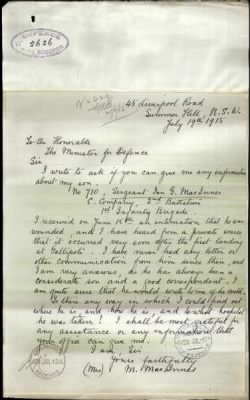 DEFENCE
2626
45 Liverpool Road
Summer Hill, N.S.W.
July 19th 1915
To the Honorable
The Minister for Defence
Sir
I write to ask if you can give me any information
about my son,
No 710 Sergeant Ian G MacInnes
C. Company, 2nd Battalion
1st Infantry Brigade.
I received on June 15th an intimation that he was
wounded, and I have heard from a private source
that it occurred very soon after the first landing
at Gallipoli. I have never had any letter or
other communication from him since then, and
I am very anxious, as he has always been a
considerate son and a good correspondent, I
am quite sure that he would write home if he could.
Is there any way in which I could find out
where he is, and how he is, and to what hospital
he was taken? I shall be most grateful for
any assistance or any information that
your office can give me.
I am Sir
Yours faithfully
(Mrs) M. MacInnes